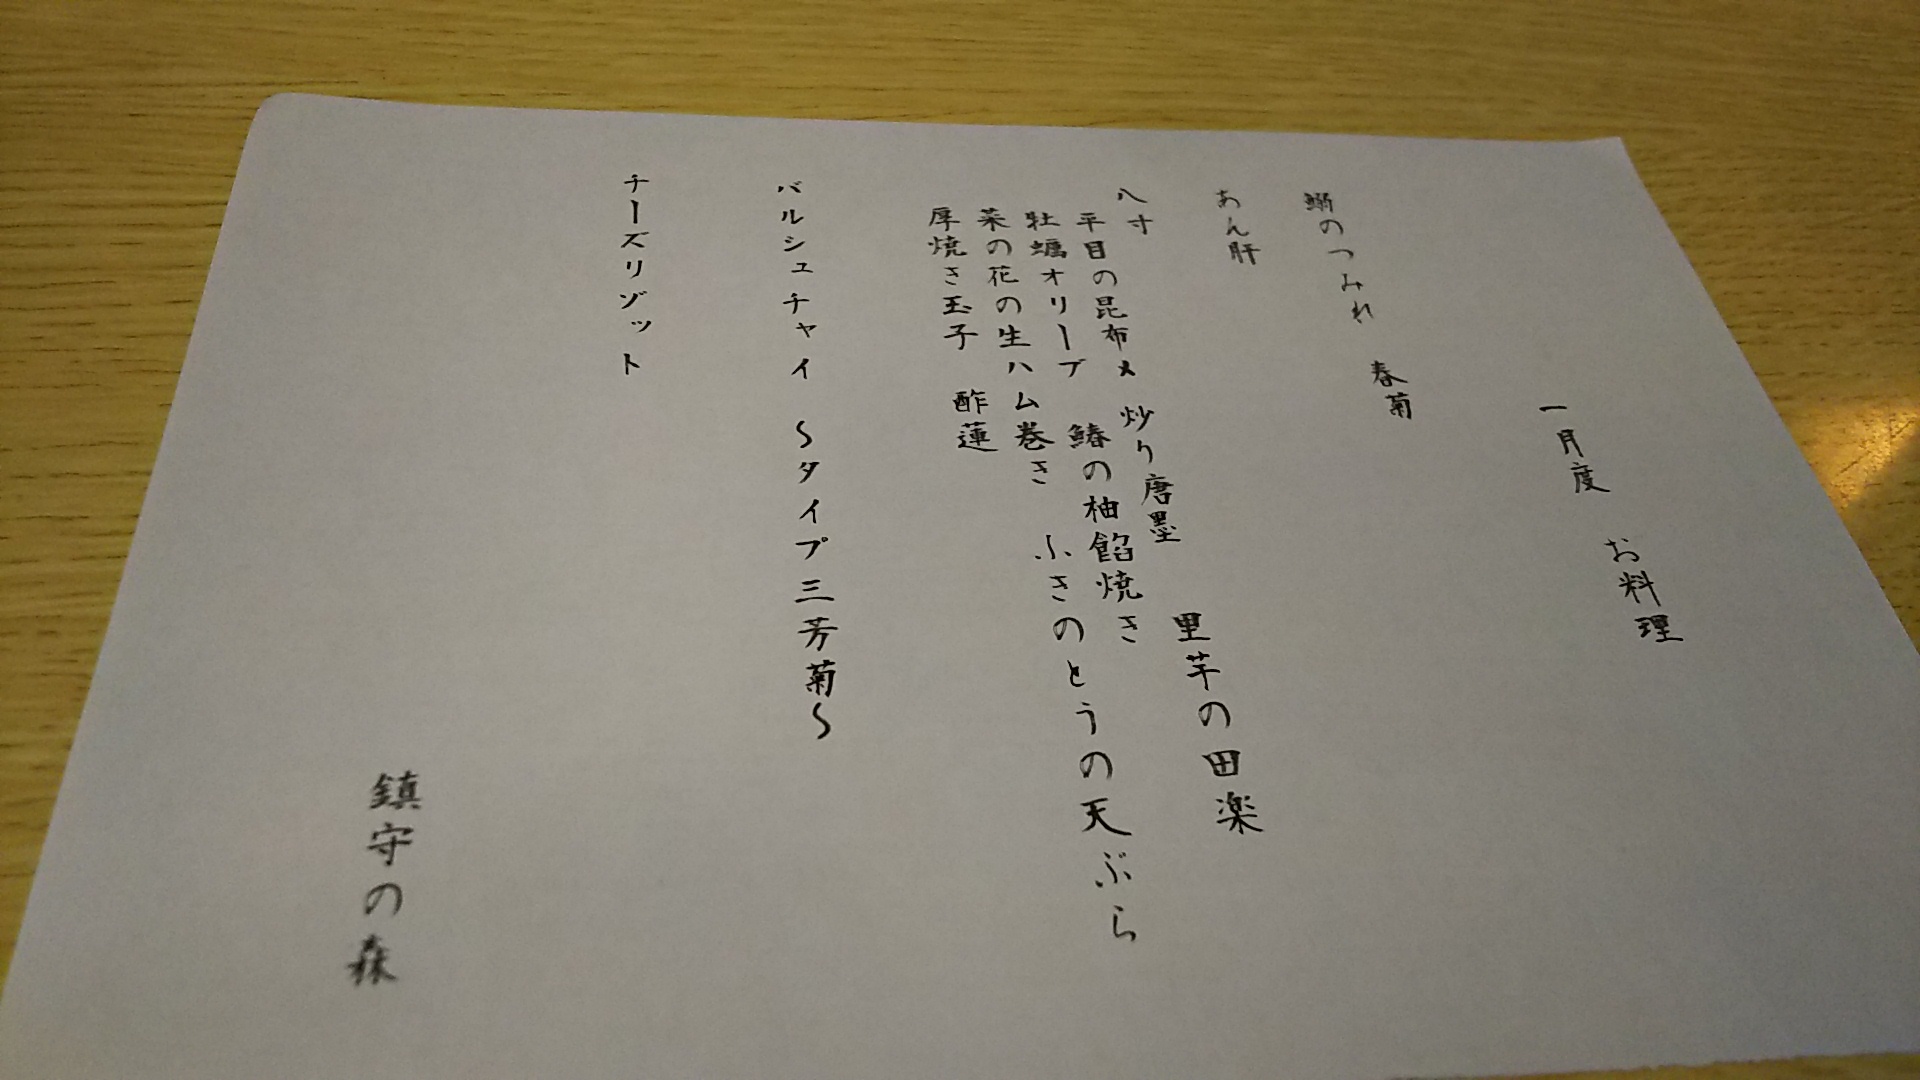 一月度　お料理
鰯のつみれ　春菊
あん肝
八寸
平目の昆布〆　炒り唐墨　里芋の田楽
牡蠣オリーブ　鰆の柚餡焼き
菜の花の生ハム巻き　ふきのとうの天ぷら
厚焼き玉子　酢蓮
バルシュチャイ　～タイプ三芳菊～
チーズリゾット
鎮守の森